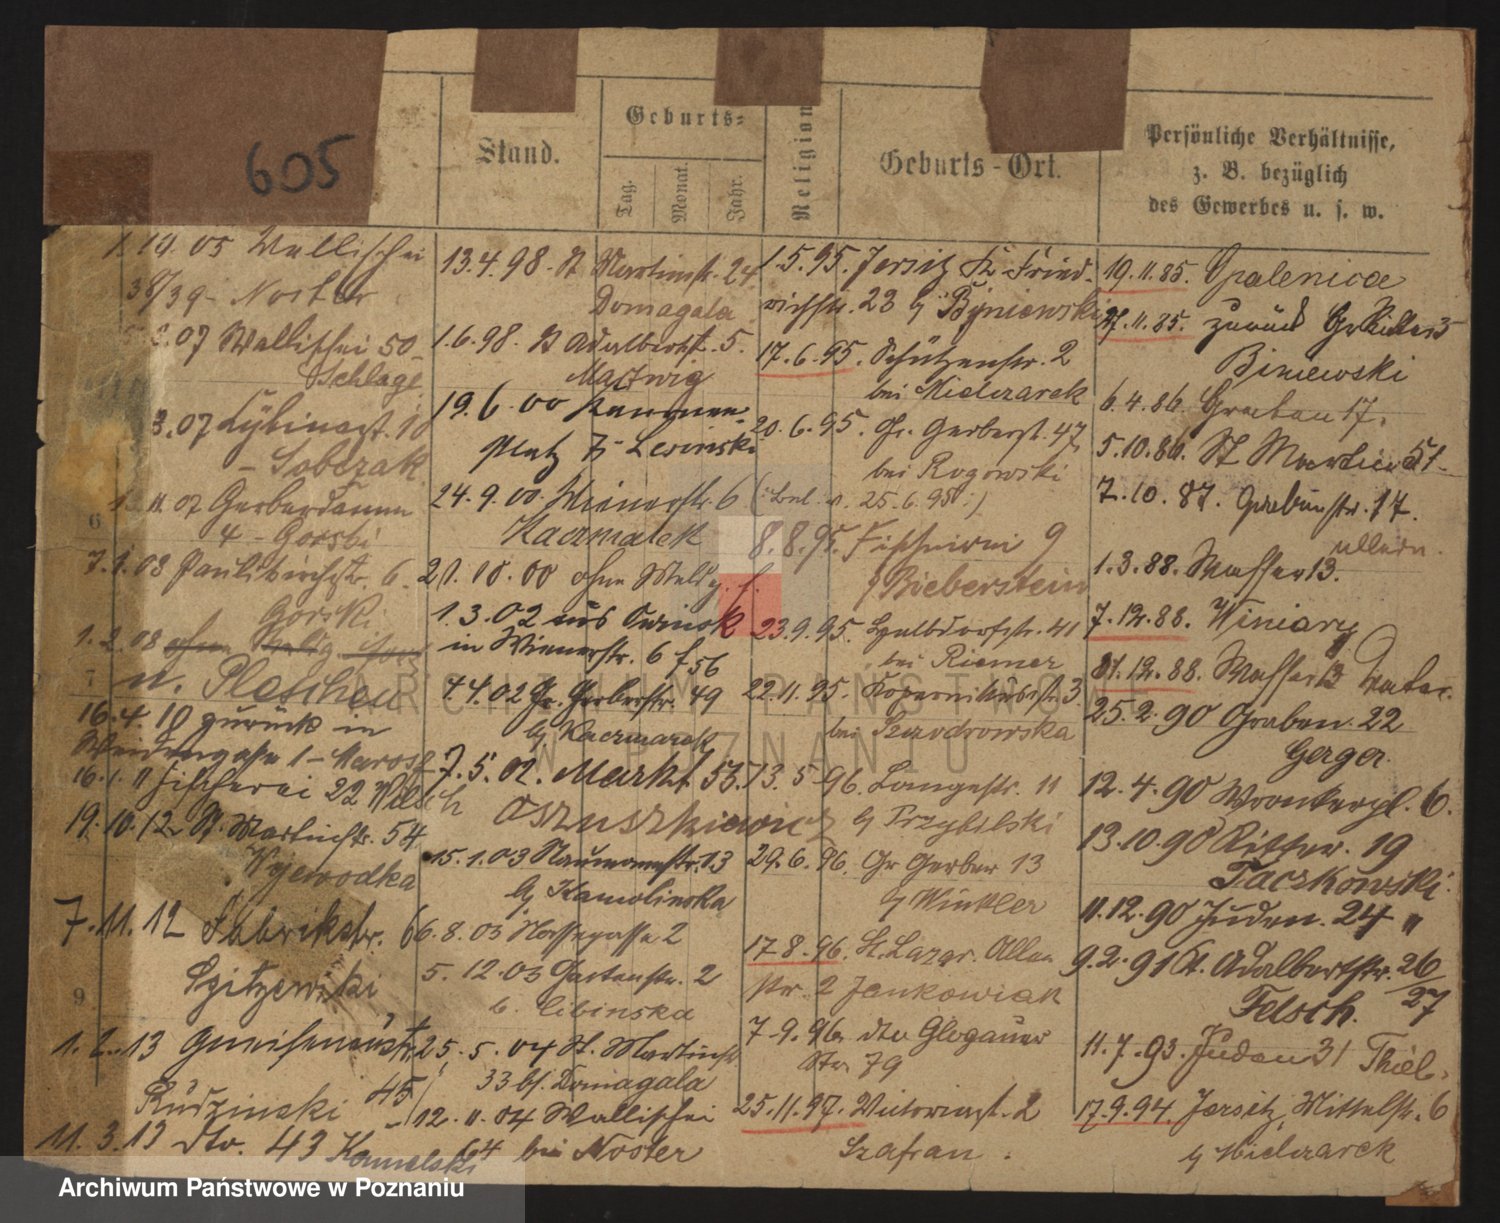 605
Stand.
Geburts=
Tag.
Monat.
Jahr.
Religion
Geburts-Ort.
Persönliche Verhältnisse,
z. B. bezüglich
des Gewerbes u. s. w.
1.10.05 Wallischei
38/39 - Noster
2.07 Wallischei 50 -
Schlage
3.07 Lybinast. 10
- Sobczak
11.07 Gerberdamm
6
4 - Gorski
7.1.08 Paulikirchstr. 6.
Gorski
1.2.08 ohne Meldg. fort
7
n. Pleschen
16.4.10 zurück in
Weidengasse 1 -
16.1.11 Fischerei 22
19.10.12 St. Martinstr. 54
Wojewodka
7.11.12 Fabrikstr. 6
9
1.2.13 Gneisenaustr.
Rudzinski 45
11.3.13 dto. 43 Kamelski
13.4.98 - St Martinstr. 24
Domagala
1.6.98. St Adalbertst. 5.
Martwig
19.6.00
Platz 7 - Lesinski
24.9.00. Wienerstr. 6
Kaczmarek
21.10.00 ohne Meldg. f.
1.3.02 aus Owinsk
in Wienerstr. 6 f 56
4.4.02 Gr. Gerberstr. 49
bj Kaczmarek
7.5.02. Markt 53.
Oszuszkiewicz
15.1.03 Naumannstr. 13
bj Kamolinska
6.8.03 Nassegasse 2
5.12.03 Gartenstr. 2
b. Libinska
25.5.04 St. Martinstr
33 bj. Domagala
12.11.04 Wallischei
64 bei Noster
1.5.95. Jersitz Kr Fried-
richstr. 23 bj Byniewski
17.6.95. Schützenstr. 2
bei Mielczarek
20.6.95. Gr. Gerberst. 47
bei Rogowski
25.6.95 :)
8.8.95. Fischerei 9
bj Bieberstein
23.9.95. Halbdorfstr. 41
bei Riemer
22.11.95. Kopernikusst. 3
bei Szavdrowska
13.5.96. Langestr. 11
bj Przybilski
29.6.96. Gr Gerber 13
bj Winkler
17.8.96. St. Lazar. Allee
str. 2 Jankowiak
7.9.96. dto Glogauer
Str. 79
25.11.97. Victoriast. 2
Szafran.
19.11.85. Opalenica
27.11.85. zurück Gr Ritter 3
Biniewski
6.4.86. Graben 17.
5.10.86. St Martin 51 -
7.10.87. Grabenstr. 17.
1.3.88. Wasser 13.
7.12.88. Winiary
31.12.88. Wasser 13
25.2.90 Graben 22
Gerger.
12.4.90 Wronkerpl. 6.
13.10.90 Ritter. 19
Taczkowski.
11.12.90 Juden. 24 "
9.2.91 St. Adalbertstr. 26/27
Felsch.
11.7.93. Juden 31 Thiel.
17.9.94. Jersitz, Mittelstr. 6
bj Mielczarek
ARCHIWUM PAŃSTWOWE
W POZNANIU
Archiwum Państwowe w Poznaniu